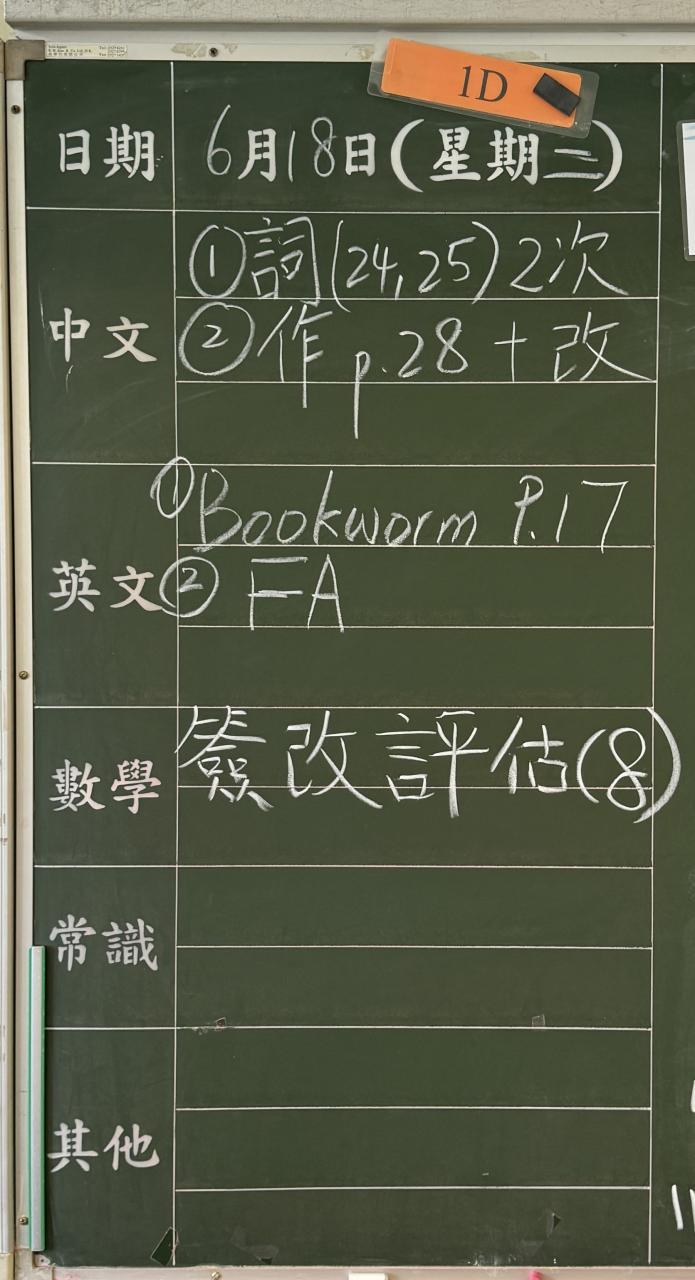 1D
日期 6月18日(星期二)
中文
①詞(24,25)2次
②作 p.28 + 改
英文
①Bookworm P.17
② FA
數學
簽改評估(8)
常識
其他